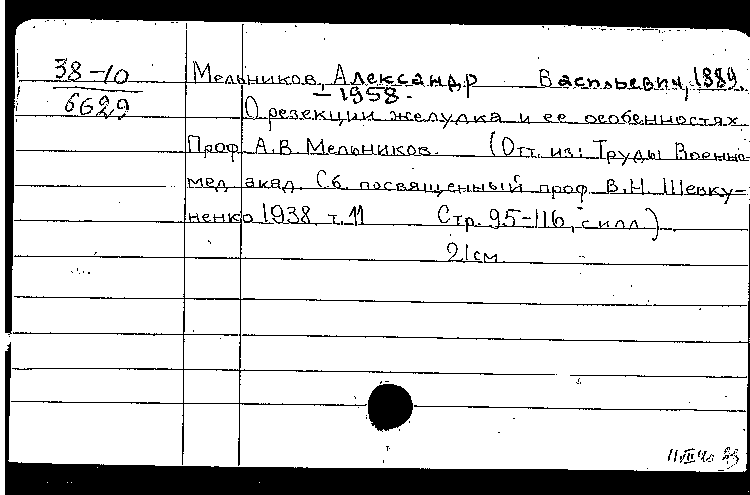 38-10
6629
Мельников, Александр Васильевич, 1889.
-1958.
О резекции желудка и ее особенностях.
Проф. А.В. Мельников. (Отт. из: Труды Военно-
мед. акад. Сб. посвященный проф. В.Н. Шевку-
ненко 1938 т. 11 Стр. 95-116, с илл.)
21 см.
11.VII 40